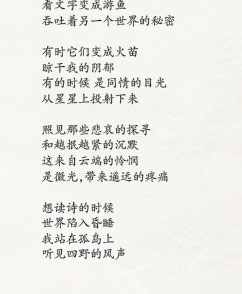 看文字变成游鱼
吞吐着另一个世界的秘密
有时它们变成火苗
晾干我的阴郁
有的时候 是同情的目光
从星星上投射下来
照见那些悲哀的探寻
和越抿越紧的沉默
这来自云端的怜悯
是微光,带来遥远的疼痛
想读诗的时候
世界陷入昏睡
我站在孤岛上
听见四野的风声